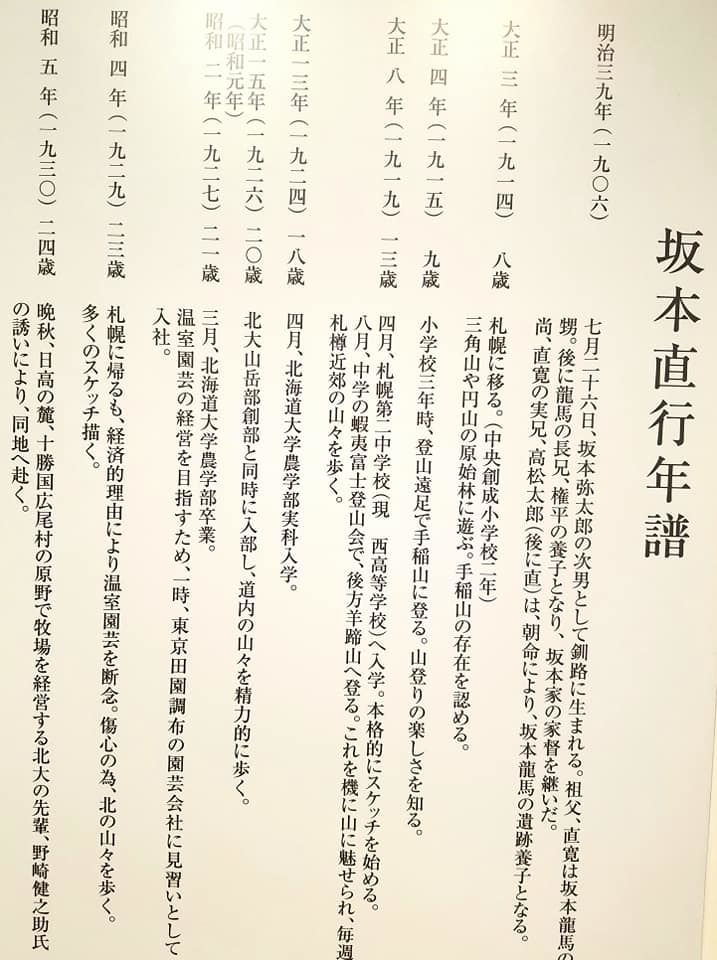 坂本直行年譜
明治三九年(一九〇六)
七月二十六日、坂本弥太郎の次男として釧路に生まれる。祖父、直寛は坂本龍馬の
甥。後に龍馬の長兄、権平の養子となり、坂本家の家督を継いだ。
尚、直寛の実兄、高松太郎(後に直)は、朝命により、坂本龍馬の遺跡養子となる。
大正 三 年(一九一四) 八歳
札幌に移る。(中央創成小学校二年)
三角山や円山の原始林に遊ぶ。手稲山の存在を認める。
大正 四 年(一九一五) 九歳
小学校三年時、登山遠足で手稲山に登る。山登りの楽しさを知る。
大正 八 年(一九一九) 一三歳
四月、札幌第二中学校(現 西高等学校)へ入学。本格的にスケッチを始める。
八月、中学の蝦夷富士登山会で、後方羊蹄山へ登る。これを機に山に魅せられ、毎週
札樽近郊の山々を歩く。
大正一三年(一九二四) 一八歳
四月、北海道大学農学部実科入学。
大正一五年(一九二六) 二〇歳
(昭和元年)
北大山岳部創部と同時に入部し、道内の山々を精力的に歩く。
昭和 二 年(一九二七) 二一歳
三月、北海道大学農学部卒業。
温室園芸の経営を目指すため、一時、東京田園調布の園芸会社に見習いとして
入社。
昭和 四 年(一九二九) 二三歳
札幌に帰るも、経済的理由により温室園芸を断念。傷心の為、北の山々を歩く。
多くのスケッチ描く。
昭和 五 年(一九三〇) 二四歳
晩秋、日高の麓、十勝国広尾村の原野で牧場を経営する北大の先輩、野崎健之助氏
の誘いにより、同地へ赴く。